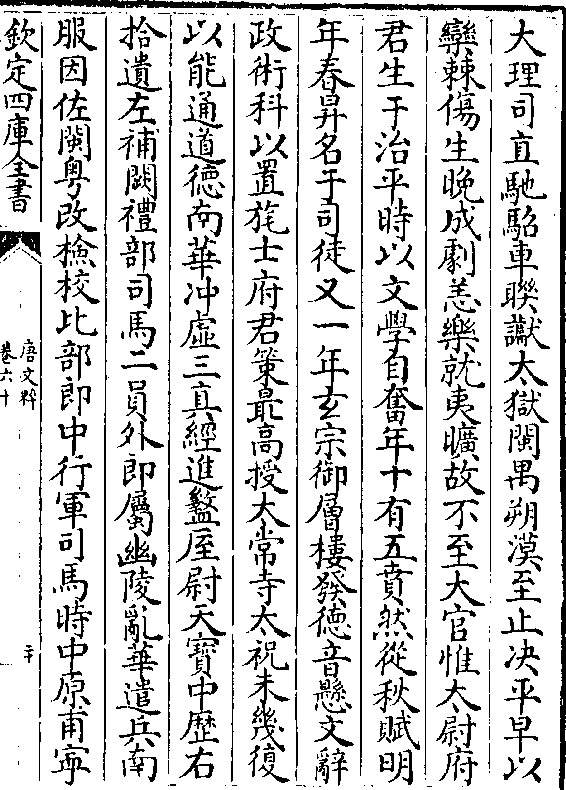 大理司直馳軺車聯讞大獄閩禺朔漠至止决平早以
欒棘傷生晚成劇恙樂就夷曠故不至大官惟太尉府
君生于治平時以文學自奮年十有五賁然從秋賦明
年春昇名于司徒又一年玄宗御層樓發德音懸文辭
政術科以置髦士府君策最高授太常寺太祝未幾復
以能通道德南華冲虛三真經進盩厔尉天寶中歴右
拾遺左補闕禮部司馬二員外郎屬幽陵亂華遣兵南
服因佐閩粤改檢校比部郎中行軍司馬時中原甫寧
欽定四庫全書
唐文粹
卷六十
二十